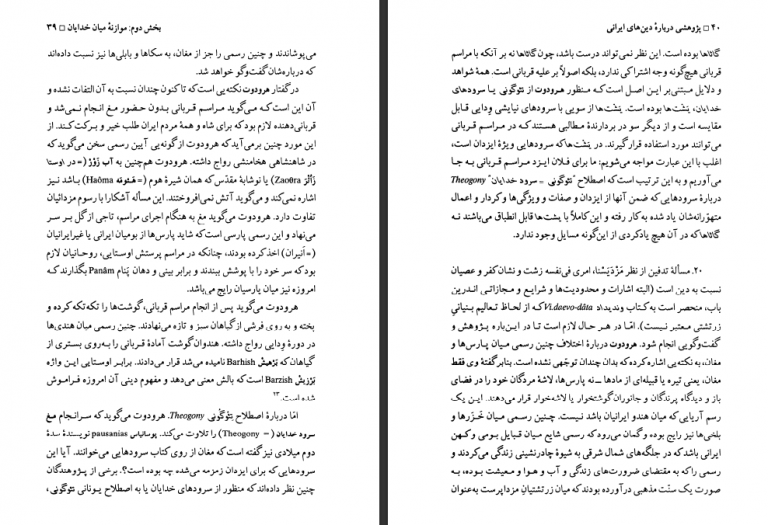 بخش دوم: موازنهٔ میان خدایان □ ۳۹
می‌پوشاندند و چنین رسمی را جز از مغان، به سکاها و بابلی‌ها نیز نسبت داده‌اند
که درباره‌شان گفت‌وگو خواهد شد.
در گفتار هرودوت نکته‌یی است که تاکنون چندان نسبت به آن التفات نشده و
آن این است که می‌گوید مراسم قربانی بدون حضور مغ انجام نمی‌شد و
قربانی‌دهنده لازم بود که برای شاه و همهٔ مردم ایران طلب خیر و برکت کند. از
این مورد چنین برمی‌آید که هرودوت از گونه‌یی آیین رسمی سخن می‌گوید که
در شاهنشاهی هخامنشی رواج داشته. هرودوت هم‌چنین به آب زَوْرْ (= در اوستا
زَاُثْرَ Zaoθra) یا نوشابهٔ مقدّس که همان شیرهٔ هوم (= هَـئومَه Haōma) باشد نیز
اشاره نمی‌کند و می‌گوید آتش نمی‌افروختند. این مسأله آشکارا با رسوم مزدائیان
تفاوت دارد. هرودوت می‌گوید مغ به هنگام اجرای مراسم، تاجی از گل بر سر
می‌نهاد و این رسمی پارسی است که شاید پارس‌ها از بومیان ایرانی یا غیرایرانیان
(= اَنیران) اخذ کرده بودند، چنانکه در مراسم پرستش اوستایی، روحانیان لازم
بود که سر خود را با پوشش ببندند و برابر بینی و دهان پَنام Panām بگذارند که
امروزه نیز میان پارسیان رایج می‌باشد.
هرودوت می‌گوید پس از انجام مراسم قربانی، گوشت‌ها را تکه‌تکه کرده و
پخته و به روی فرشی از گیاهان سبز و تازه می‌نهادند. چنین رسمی میان هندی‌ها
در دورهٔ ودایی رواج داشته. هندوان گوشت آمادهٔ قربانی را به‌روی بستری از
گیاهان که بَرْهیش Barhish نامیده می‌شد قرار می‌دادند. برابر اوستایی این واژه
بَرْزیش Barzish است که بالش معنی می‌دهد و مفهوم دینی آن امروزه فراموش
شده است.۲۳
امّا دربارهٔ اصطلاح تِئوگُونی Theogony. هرودوت می‌گوید که سرانجام مغ
سرود خدایان (= Theogony) را تلاوت می‌کند. پوسانیاس pausanias نویسندهٔ سدهٔ
دوم میلادی نیز گفته است که مغان از روی کتاب سرودهایی می‌خوانند. آیا این
سرودهایی که برای ایزدان زمزمه می‌شده چه بوده است؟. برخی از پژوهندگان
چنین نظر داده‌اند که منظور از سرودهای خدایان یا به اصطلاح یونانی تئوگونی،
۴۰ □ پژوهشی دربارهٔ دین‌های ایرانی
گاثاها بوده است. این نظر نمی‌تواند درست باشد، چون گاثاها نه بر آنکه با مراسم
قربانی هیچ‌گونه وجه اشتراکی ندارد، بلکه اصولاً بر علیه قربانی است. همهٔ شواهد
و دلایل مبتنی بر این اصل است که منظور هرودوت از تئوگونی یا سرودهای
خدایان، یَشْت‌ها بوده است. یَشْت‌ها از سویی با سرودهای نیایشی ودایی قابل
مقایسه است و از دیگر سو در بردارندهٔ مطالبی هستند که در مراسم قربانی
می‌توانند مورد استفاده قرار گیرند. در یَشت‌ها که سرودهایی ویژهٔ ایزدان است،
اغلب با این عبارت مواجه می‌شویم: ما برای فلان ایزد مراسم قربانی به جا
می‌آوریم و به این ترتیب است که اصطلاح "تئوگونی = سرود خدایان" Theogony
دربارهٔ سرودهایی که ضمن آنها از ایزدان و صفات و ویژگی‌ها و کردار و اعمال
متهوّرانه‌شان یاد شده به کار رفته و این کاملاً با یشت‌ها قابل انطباق می‌باشند نه
گاثاها که در آن هیچ یادکردی از این‌گونه مسایل وجود ندارد.
۲۰. مسألهٔ تدفین از نظر مَزْدَیَسْنا، امری فی‌نفسه زشت و نشان کفر و عصیان
نسبت به دین است (البته اشارات و محدودیت‌ها و شرایع و مجازاتی اندرین
باب، منحصر است به کتاب وندیداد Vi.daevo-dāta که از لحاظ تعالیم بنیانیِ
زرتشتی معتبر نیست). امّا در هر حال لازم است تا در این‌باره پژوهش و
گفت‌وگویی انجام شود. هرودوت دربارهٔ اختلاف چنین رسمی میان پارس‌ها و
مغان، به نکته‌یی اشاره کرده که بدان چندان توجّهی نشده است. بنابر گفتهٔ وی فقط
مغان، یعنی تیره یا قبیله‌ای از مادها ــ نه پارس‌ها، لاشهٔ مردگان خود را در فضای
باز و دیدگاه پرندگان و جانوران گوشتخوار یا لاشه‌خوار قرار می‌دهند. این یک
رسم آریایی که میان هندو ایرانیان باشد نیست. چنین رسمی میان خَزَرها و
بلخی‌ها نیز رایج بوده و گمان می‌رود که رسمی شایع میان قبایل بومی و کهن
ایرانی باشد که در جلگه‌های شمال شرقی به شیوهٔ چادرنشینی زندگی می‌کردند و
رسمی را که به مقتضای ضرورت‌های زندگی و آب و هوا و معیشت بوده، به
صورت یک سنّت مذهبی درآورده بودند که میان زرتشتیانِ مزداپرست به‌عنوان